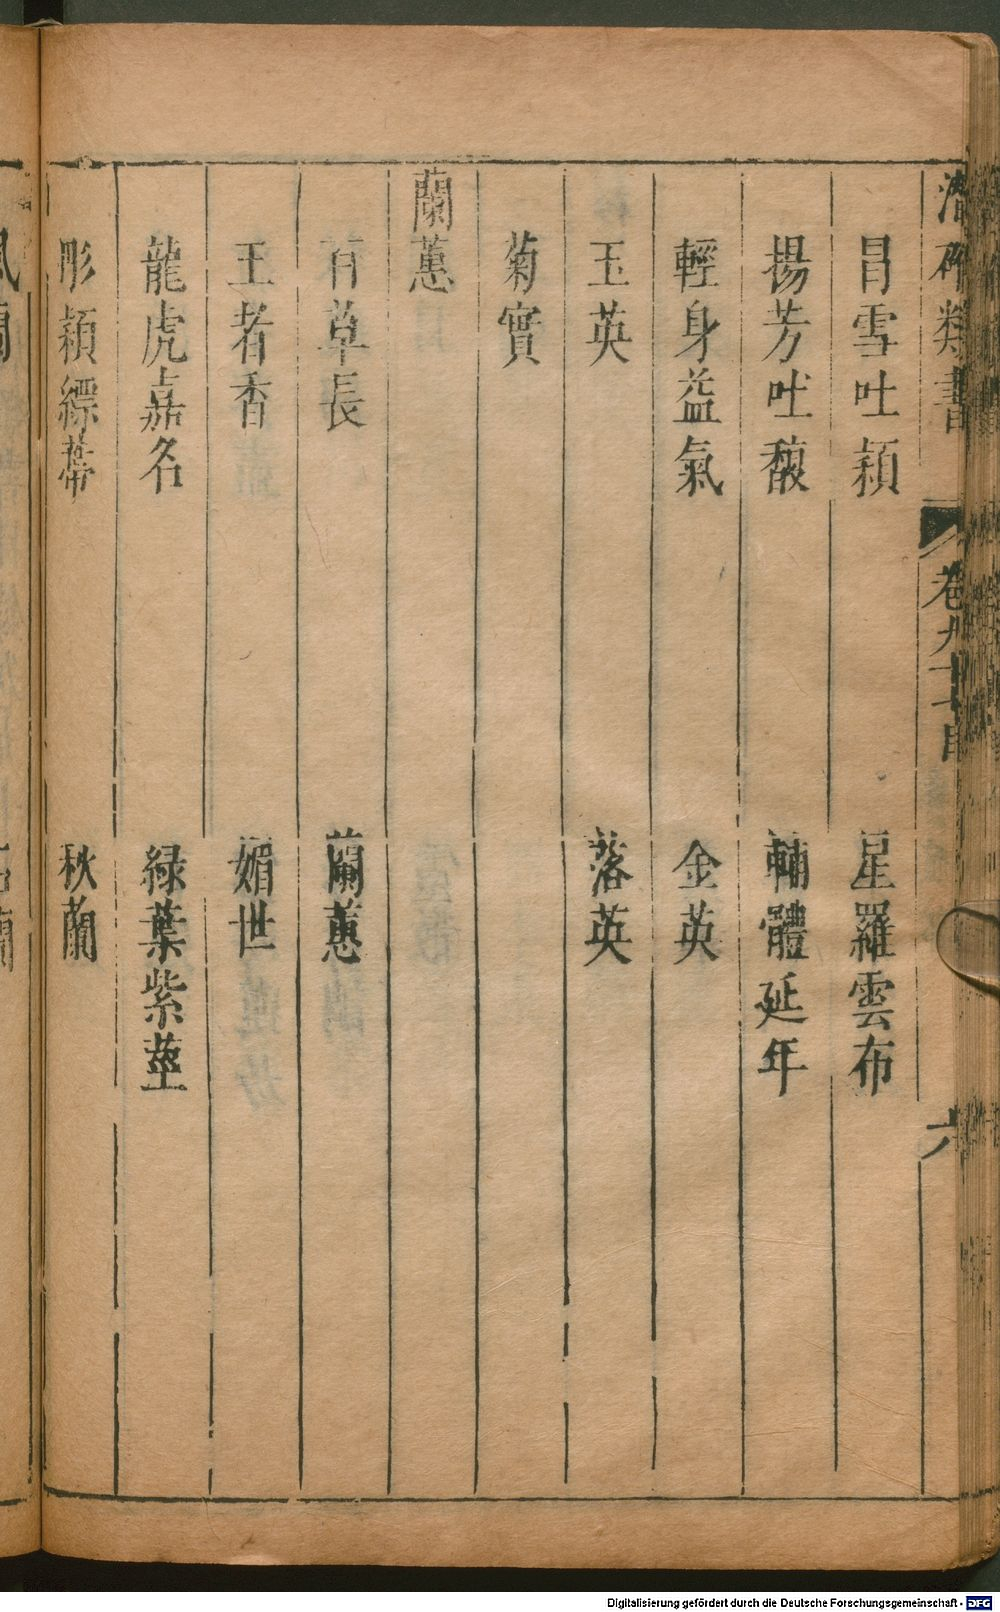 潛確類書 卷九十七目 六
冒雪吐穎 星羅雲布
揚芳吐馥 輔體延年
輕身益氣 金英
玉英 落英
菊實
蘭蕙
百草長 蘭蕙
王者香 媚世
龍虎嘉名 綠葉紫莖
彤穎縹蒂 秋蘭
Digitalisierung gefördert durch die Deutsche Forschungsgemeinschaft - DFG